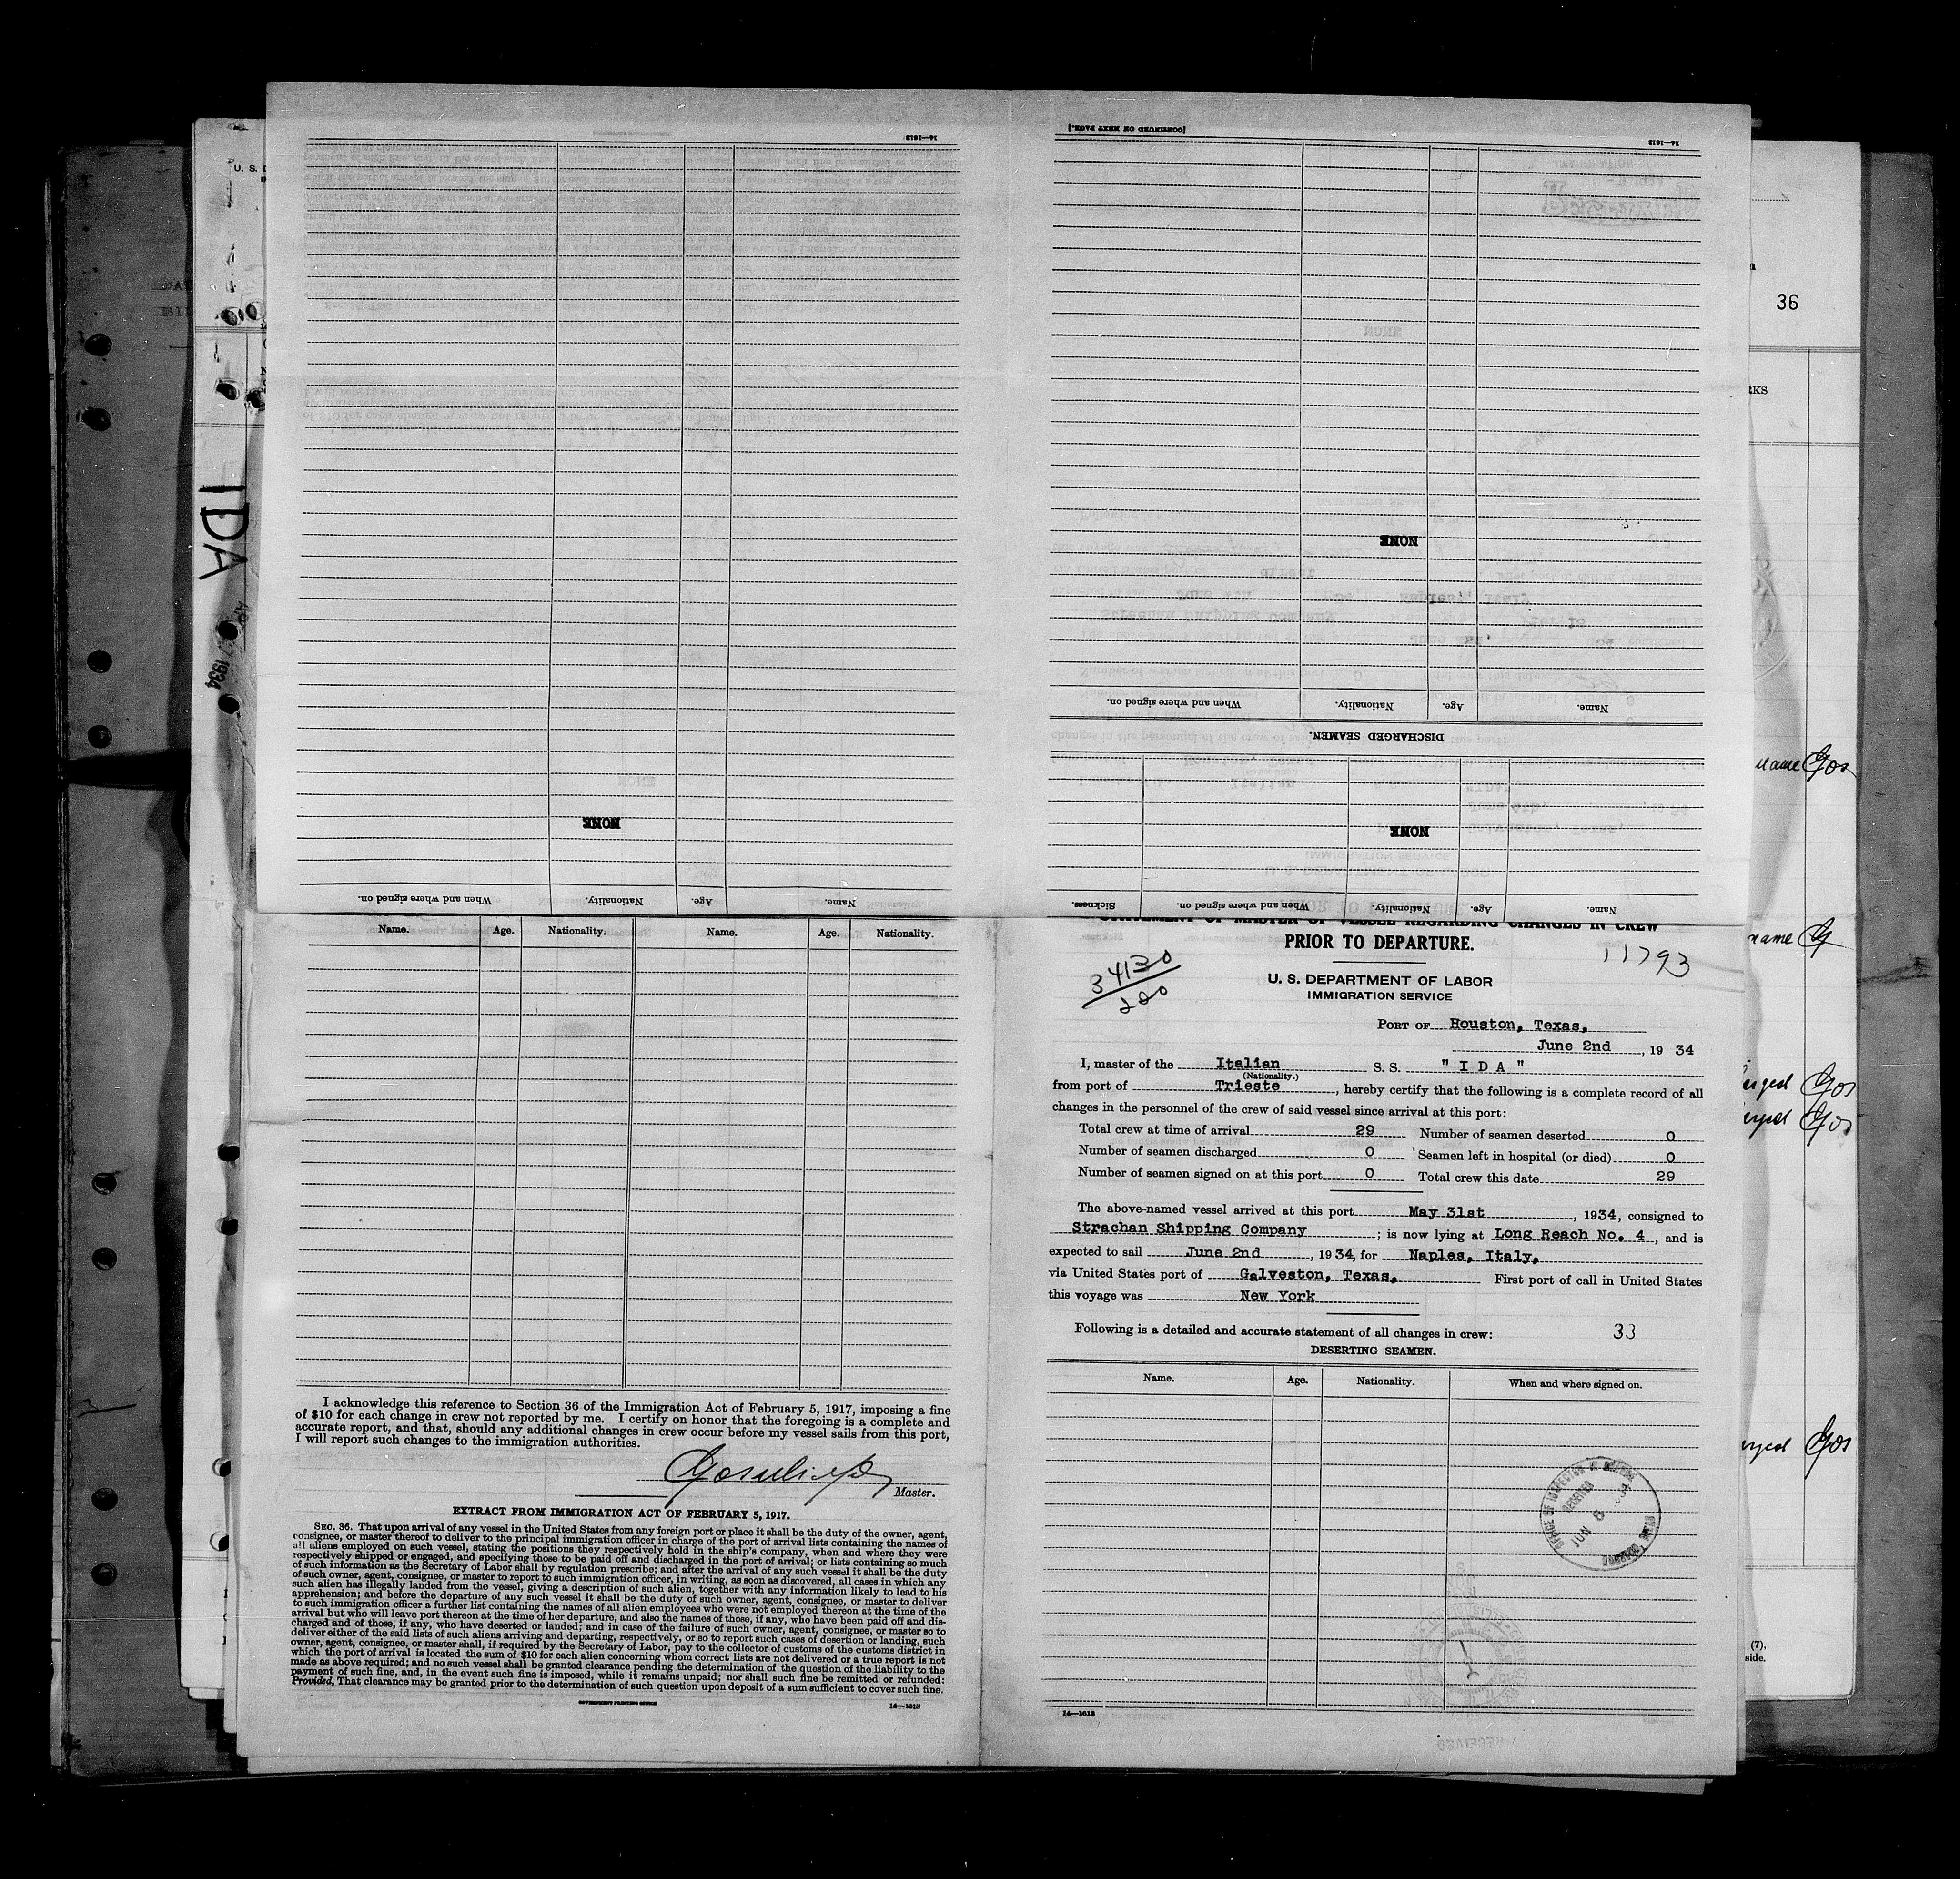 16—1613
[CONTINUED ON NEXT PAGE.]
16—1613
U. S. D
36
RKS
IDA
1934
NONE
Name. Age. Nationality. When and where signed on.
DISCHARGED SEAMEN.
NONE
Name. Age. Nationality. When and where signed on. Sickness.
NONE
Name. Age. Nationality. When and where signed on.
Name. Age. Nationality. Name. Age. Nationality.
I acknowledge this reference to Section 36 of the Immigration Act of February 5, 1917, imposing a fine
of $10 for each change in crew not reported by me. I certify on honor that the foregoing is a complete and
accurate report, and that, should any additional changes in crew occur before my vessel sails from this port,
I will report such changes to the immigration authorities.
Master.
EXTRACT FROM IMMIGRATION ACT OF FEBRUARY 5, 1917.
SEC. 36. That upon arrival of any vessel in the United States from any foreign port or place it shall be the duty of the owner, agent,
consignee, or master thereof to deliver to the principal immigration officer in charge of the port of arrival lists containing the names of
all aliens employed on such vessel, stating the positions they respectively hold in the ship's company, when and where they were
respectively shipped or engaged, and specifying those to be paid off and discharged in the port of arrival; or lists containing so much
of such information as the Secretary of Labor shall by regulation prescribe; and after the arrival of any such vessel it shall be the duty
of such owner, agent, consignee, or master to report to such immigration officer, in writing, as soon as discovered, all cases in which any
such alien has illegally landed from the vessel, giving a description of such alien, together with any information likely to lead to his
apprehension; and before the departure of any such vessel it shall be the duty of such owner, agent, consignee, or master to deliver
to such immigration officer a further list containing the names of all alien employees who were not employed thereon at the time of the
arrival but who will leave port thereon at the time of her departure, and also the names of those, if any, who have been paid off and dis-
charged and of those, if any, who have deserted or landed; and in case of the failure of such owner, agent, consignee, or master so to
deliver either of the said lists of such aliens arriving and departing, respectively, or so to report such cases of desertion or landing, such
owner, agent, consignee, or master shall, if required by the Secretary of Labor, pay to the collector of customs of the customs district in
which the port of arrival is located the sum of $10 for each alien concerning whom correct lists are not delivered or a true report is not
made as above required; and no such vessel shall be granted clearance pending the determination of the question of the liability to the
payment of such fine, and, in the event such fine is imposed, while it remains unpaid; nor shall such fine be remitted or refunded:
Provided, That clearance may be granted prior to the determination of such question upon deposit of a sum sufficient to cover such fine.
GOVERNMENT PRINTING OFFICE 14—1613
STATEMENT OF MASTER OF VESSEL REGARDING CHANGES IN CREW
PRIOR TO DEPARTURE.
11793
34130
200
U. S. DEPARTMENT OF LABOR
IMMIGRATION SERVICE
PORT OF Houston, Texas,
June 2nd, 1934
I, master of the Italian S. S. "IDA"
(Nationality.)
from port of Trieste, hereby certify that the following is a complete record of all
changes in the personnel of the crew of said vessel since arrival at this port:
Total crew at time of arrival 29 Number of seamen deserted 0
Number of seamen discharged 0 Seamen left in hospital (or died) 0
Number of seamen signed on at this port 0 Total crew this date 29
The above-named vessel arrived at this port May 31st, 1934, consigned to
Strachan Shipping Company; is now lying at Long Reach No. 4, and is
expected to sail June 2nd, 1934, for Naples, Italy,
via United States port of Galveston, Texas, First port of call in United States
this voyage was New York
Following is a detailed and accurate statement of all changes in crew: 33
DESERTING SEAMEN.
Name. Age. Nationality. When and where signed on.
RECEIVED
JUN 8
14—1613
name
name
(7),
side.